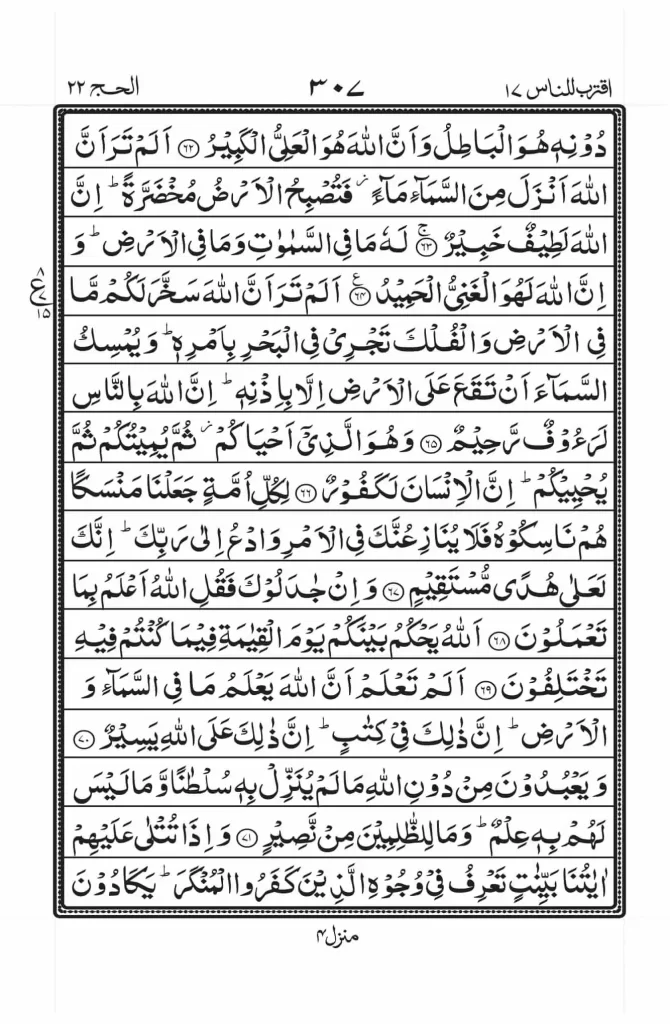 اقترب للناس ١٧ ٣٠٧ الحج ٢٢
دُوْنِهٖ هُوَ الْبَاطِلُ وَاَنَّ اللّٰهَ هُوَ الْعَلِیُّ الْكَبِیْرُ ﴿۶۲﴾ اَلَمْ تَرَ اَنَّ
اللّٰهَ اَنْزَلَ مِنَ السَّمَآءِ مَآءً ز فَتُصْبِحُ الْاَرْضُ مُخْضَرَّةً ؕ اِنَّ
اللّٰهَ لَطِیْفٌ خَبِیْرٌ ﴿۶۳﴾ۚ لَهٗ مَا فِی السَّمٰوٰتِ وَمَا فِی الْاَرْضِ ؕ وَ
اِنَّ اللّٰهَ لَهُوَ الْغَنِیُّ الْحَمِیْدُ ﴿۶۴﴾ع اَلَمْ تَرَ اَنَّ اللّٰهَ سَخَّرَ لَكُمْ مَّا
ع ٨ ٧ ١٥
فِی الْاَرْضِ وَالْفُلْكَ تَجْرِیْ فِی الْبَحْرِ بِاَمْرِهٖ ؕ وَیُمْسِكُ
السَّمَآءَ اَنْ تَقَعَ عَلَی الْاَرْضِ اِلَّا بِاِذْنِهٖ ؕ اِنَّ اللّٰهَ بِالنَّاسِ
لَرَءُوْفٌ رَّحِیْمٌ ﴿۶۵﴾ وَهُوَ الَّذِیْۤ اَحْیَاكُمْ ز ثُمَّ یُمِیْتُكُمْ ثُمَّ
یُحْیِیْكُمْ ؕ اِنَّ الْاِنْسَانَ لَكَفُوْرٌ ﴿۶۶﴾ لِكُلِّ اُمَّةٍ جَعَلْنَا مَنْسَكًا
هُمْ نَاسِكُوْهُ فَلَا یُنَازِعُنَّكَ فِی الْاَمْرِ وَادْعُ اِلٰی رَبِّكَ ؕ اِنَّكَ
لَعَلٰی هُدًی مُّسْتَقِیْمٍ ﴿۶۷﴾ وَاِنْ جٰدَلُوْكَ فَقُلِ اللّٰهُ اَعْلَمُ بِمَا
تَعْمَلُوْنَ ﴿۶۸﴾ اَللّٰهُ یَحْكُمُ بَیْنَكُمْ یَوْمَ الْقِیٰمَةِ فِیْمَا كُنْتُمْ فِیْهِ
تَخْتَلِفُوْنَ ﴿۶۹﴾ اَلَمْ تَعْلَمْ اَنَّ اللّٰهَ یَعْلَمُ مَا فِی السَّمَآءِ وَ
الْاَرْضِ ؕ اِنَّ ذٰلِكَ فِیْ كِتٰبٍ ؕ اِنَّ ذٰلِكَ عَلَی اللّٰهِ یَسِیْرٌ ﴿۷۰﴾
وَیَعْبُدُوْنَ مِنْ دُوْنِ اللّٰهِ مَا لَمْ یُنَزِّلْ بِهٖ سُلْطٰنًا وَّمَا لَیْسَ
لَهُمْ بِهٖ عِلْمٌ ؕ وَمَا لِلظّٰلِمِیْنَ مِنْ نَّصِیْرٍ ﴿۷۱﴾ وَاِذَا تُتْلٰی عَلَیْهِمْ
اٰیٰتُنَا بَیِّنٰتٍ تَعْرِفُ فِیْ وُجُوْهِ الَّذِیْنَ كَفَرُوا الْمُنْكَرَ ؕ یَكَادُوْنَ
منزل ۴